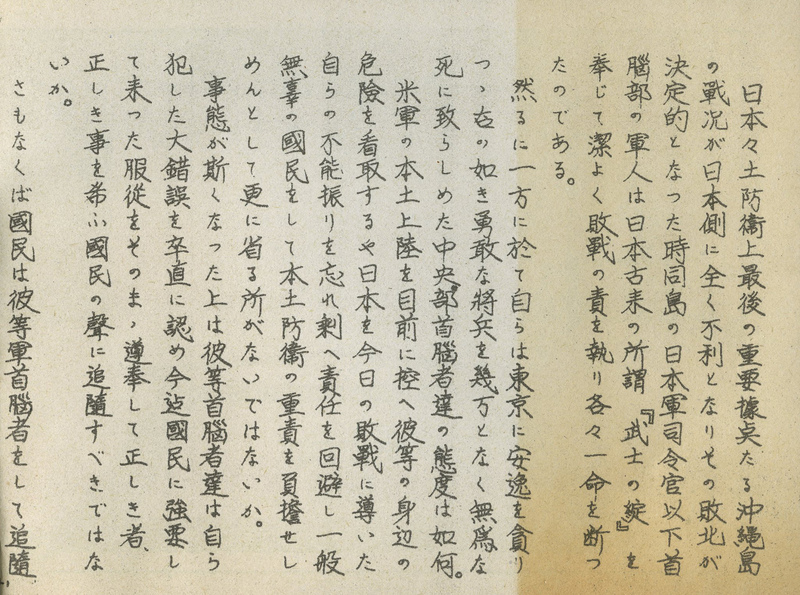 日本々土防衛上最後の重要據点たる沖縄島
の戰況が日本側に全く不利となりその敗北が
決定的となった時同島の日本軍司令官以下首
腦部の軍人は日本古来の所謂『武士の綻』を
奉じて潔よく敗戰の責を執り各々一命を断つ
たのである。
然るに一方に於て自らは東京に安逸を貪り
つゝ右の如き勇敢な將兵を幾万となく無爲な
死に致らしめた中央部首腦者達の態度は如何。
米軍の本土上陸を目前に控へ彼等の身辺の
危險を看取するや日本を今日の敗戰に導いた
自らの不能振りを忘れ剰へ責任を回避し一般
無辜の國民をして本土防衛の重責を負擔せし
めんとして更に省る所がないではないか。
事態が斯くなった上は彼等首腦者達は自ら
犯した大錯誤を卒直に認め今迠國民に強要し
て来った服從をそのまゝ遵奉して正しき者、
正しき事を希ふ國民の聲に追隨すべきではな
いか。
さもなくば國民は彼等軍首腦者をして追隨